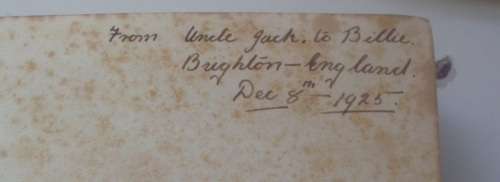 From Uncle Jack. to Billie.
Brighton - England.
Dec 8th - 1925.